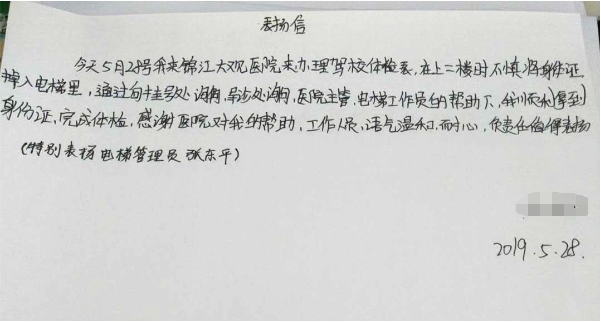 表扬信
今天5月28号我来锦江大观医院来办理驾校体检表,在上二楼时不慎将身份证
掉入电梯里,通过向挂号处询问,导诊处询问,医院主管,电梯工作员的帮助下,我顺利(得到)
身份证,完成体检,感谢医院对我的帮助,工作人员,语气温和,耐心,负责任值得表扬
(特别表扬电梯管理员 张东平)
2019.5.28.